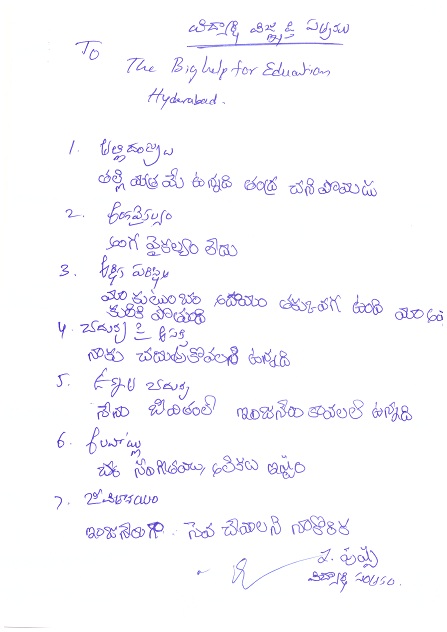 విద్యార్థి విజ్ఞప్తి పత్రము
To
The Big help for Eduation
Hyderabad.
1. తల్లిదండ్రులు
తల్లి మాత్రమే ఉన్నది తండ్రి చనిపోయాడు
2. అంగవైకల్యం
అంగ వైకల్యం లేదు
3. ఆర్థిక పరిస్థితి
మా కుటుంబం ఆదాయం తక్కువగ ఉంది మా
4. చదువు పై ఆసక్తి
నాకు చదువుకోవలని ఉన్నది
5. ఉన్నత చదువు
నేను జీవితంలో ఇంజనీరు కావలని ఉన్నది
6. అలవాట్లు
ఇష్టం
7. జీవితాశయం
ఇంజనీరుగా సేవ చేయాలని నా కోరిక
పుష్ప
విద్యార్థి సంతకం.